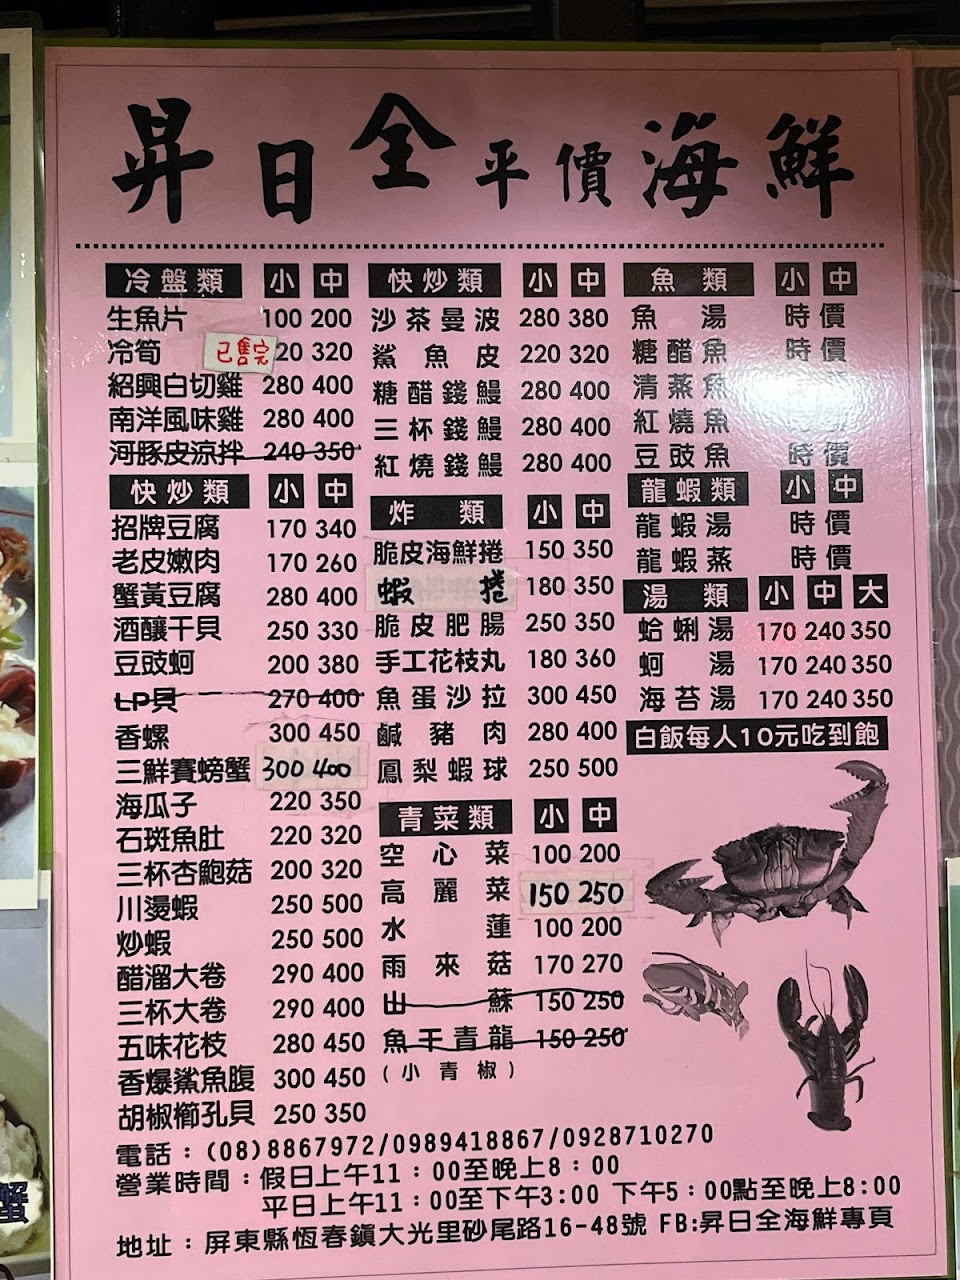 昇日全平價海鮮
冷盤類 小 中
生魚片 100 200
冷筍 已售完 20 320
紹興白切雞 280 400
南洋風味雞 280 400
河豚皮涼拌 240 350
快炒類 小 中
招牌豆腐 170 340
老皮嫩肉 170 260
蟹黃豆腐 280 400
酒釀干貝 250 330
豆豉蚵 200 380
LP貝 270 400
香螺 300 450
三鮮賽螃蟹 300 400
海瓜子 220 350
石斑魚肚 220 320
三杯杏鮑菇 200 320
川燙蝦 250 500
炒蝦 250 500
醋溜大卷 290 400
三杯大卷 290 400
五味花枝 280 450
香爆鯊魚腹 300 450
胡椒櫛孔貝 250 350
快炒類 小 中
沙茶曼波 280 380
鯊魚皮 220 320
糖醋錢鰻 280 400
三杯錢鰻 280 400
紅燒錢鰻 280 400
炸類 小 中
脆皮海鮮捲 150 350
蝦捲 180 350
脆皮肥腸 250 350
手工花枝丸 180 360
魚蛋沙拉 300 450
鹹豬肉 280 400
鳳梨蝦球 250 500
青菜類 小 中
空心菜 100 200
高麗菜 150 250
水蓮 100 200
雨來菇 170 270
山蘇 150 250
魚干青龍 150 250
(小青椒)
魚類 小 中
魚湯 時價
糖醋魚 時價
清蒸魚
紅燒魚
豆豉魚 時價
龍蝦類 小 中
龍蝦湯 時價
龍蝦蒸 時價
湯類 小 中 大
蛤蜊湯 170 240 350
蚵湯 170 240 350
海苔湯 170 240 350
白飯每人10元吃到飽
電話：(08)8867972/0989418867/0928710270
營業時間：假日上午11：00至晚上8：00
平日上午11：00至下午3:00 下午5：00點至晚上8:00
地址：屏東縣恆春鎮大光里砂尾路16-48號 FB:昇日全海鮮專頁
蟹